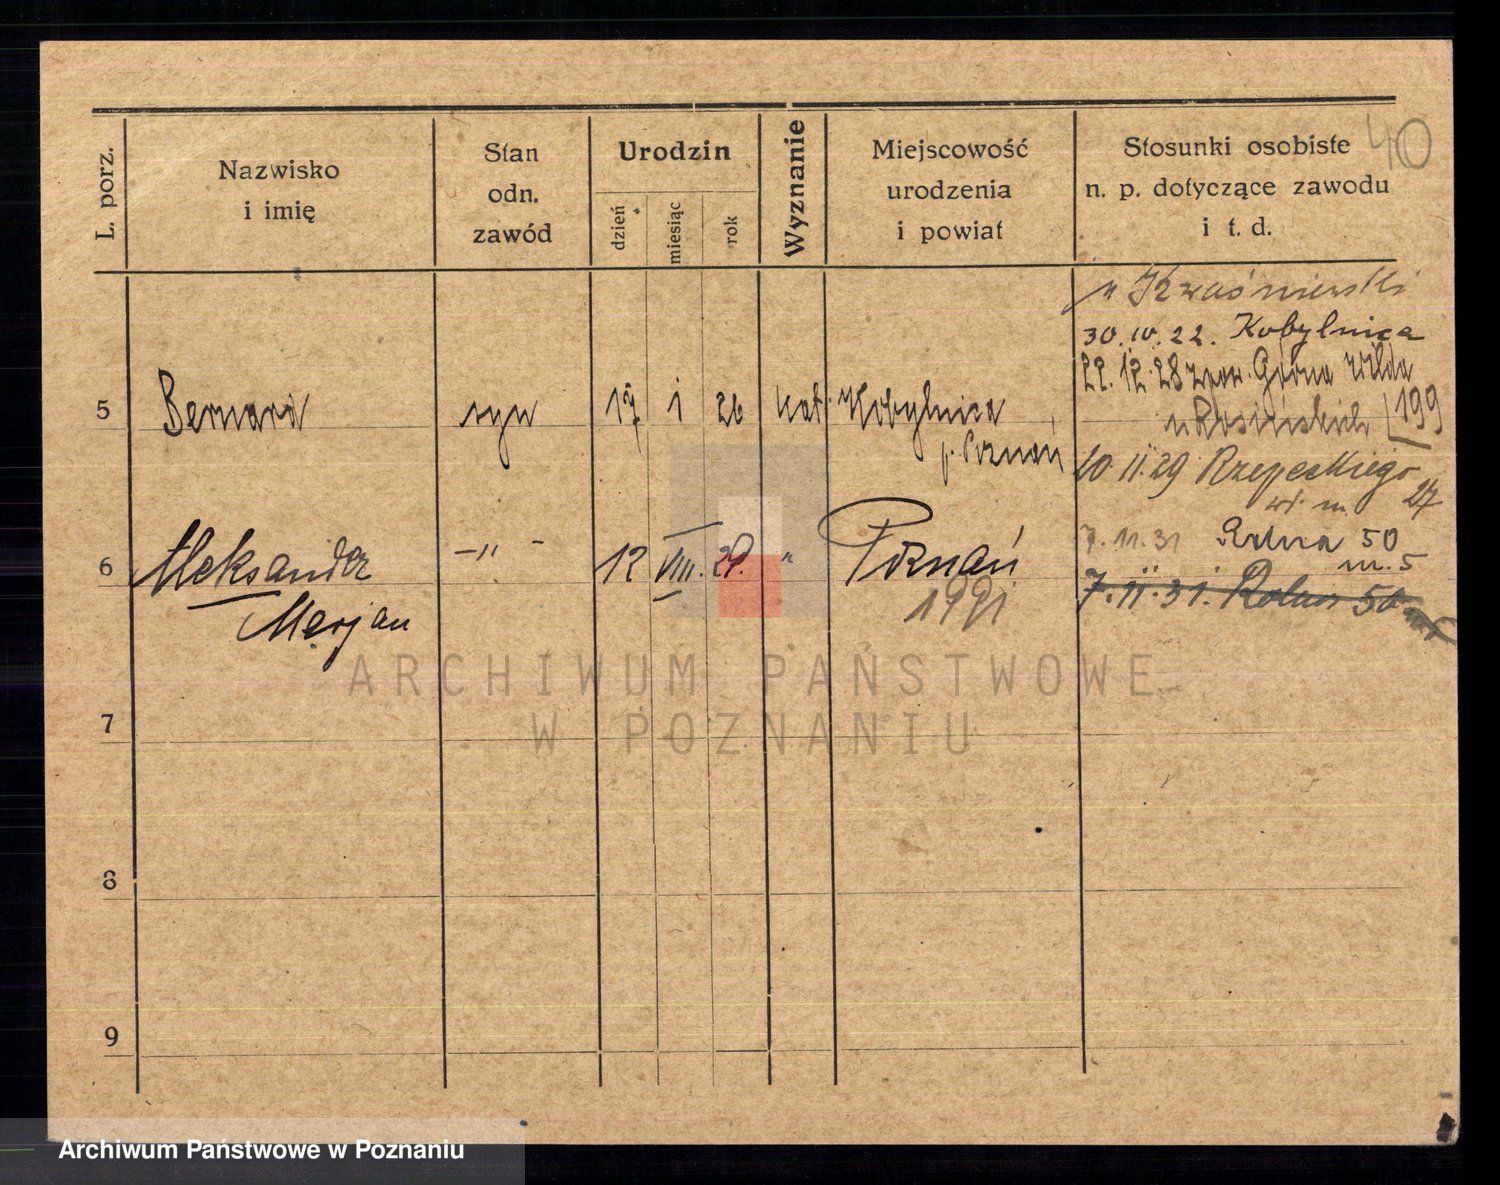 40
L. porz.
Nazwisko
i imię
Stan
odn.
zawód
Urodzin
dzień
miesiąc
rok
Wyznanie
Miejscowość
urodzenia
i powiat
Stosunki osobiste
n. p. dotyczące zawodu
i t. d.
u Kwaśniewski
30.IV.22. Kobylnica
22.12.28 Górna Wilda
199
5 Bernard syn 17 1 26 kat. Kobylnica
p. Poznań
10.II.29 Rzepeckiego 27
7.11.31 Rolna 50
m. 5
6 Aleksander —"— 12 VIII. 29. " Poznań
Marjan
1991
7.II.31. Rolna 50
7
8
9
ARCHIWUM PAŃSTWOWE
W POZNANIU
Archiwum Państwowe w Poznaniu